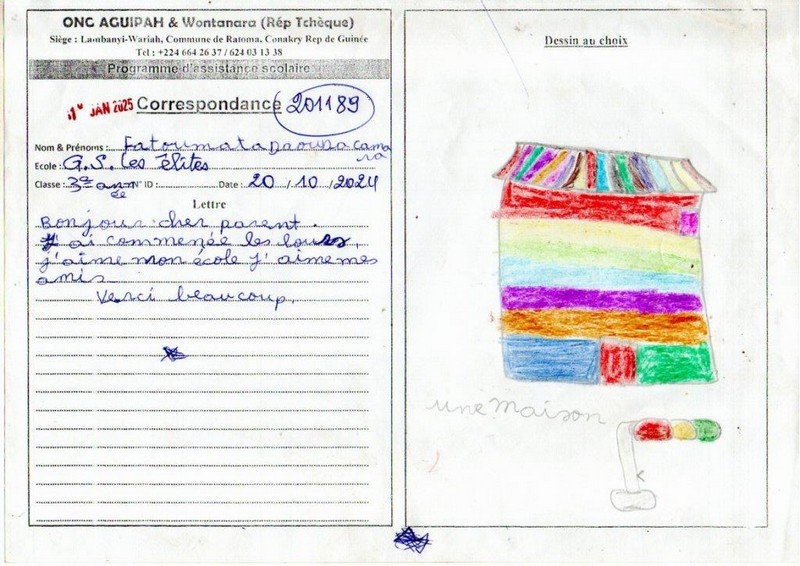 ONC AGUIPAH & Wontanara (Rép Tchèque)
Siège : Lambanyi-Wariah, Commune de Ratoma, Conakry Rep de Guinée
Tel : +224 664 26 37 / 624 03 13 38
Programme d'assistance scolaire
JAN 2025 Correspondance 201189
Nom & Prénoms : Fatoumata Daouda Camara
Ecole : G.S. Les Élites
Classe : 3e année N° ID : Date : 20 / 10 / 2024
Lettre
Bonjour cher parent.
J'ai commenée les cours,
j'aime mon école J'aime mes
amis
Merci beaucoup,
Dessin au choix
une maison